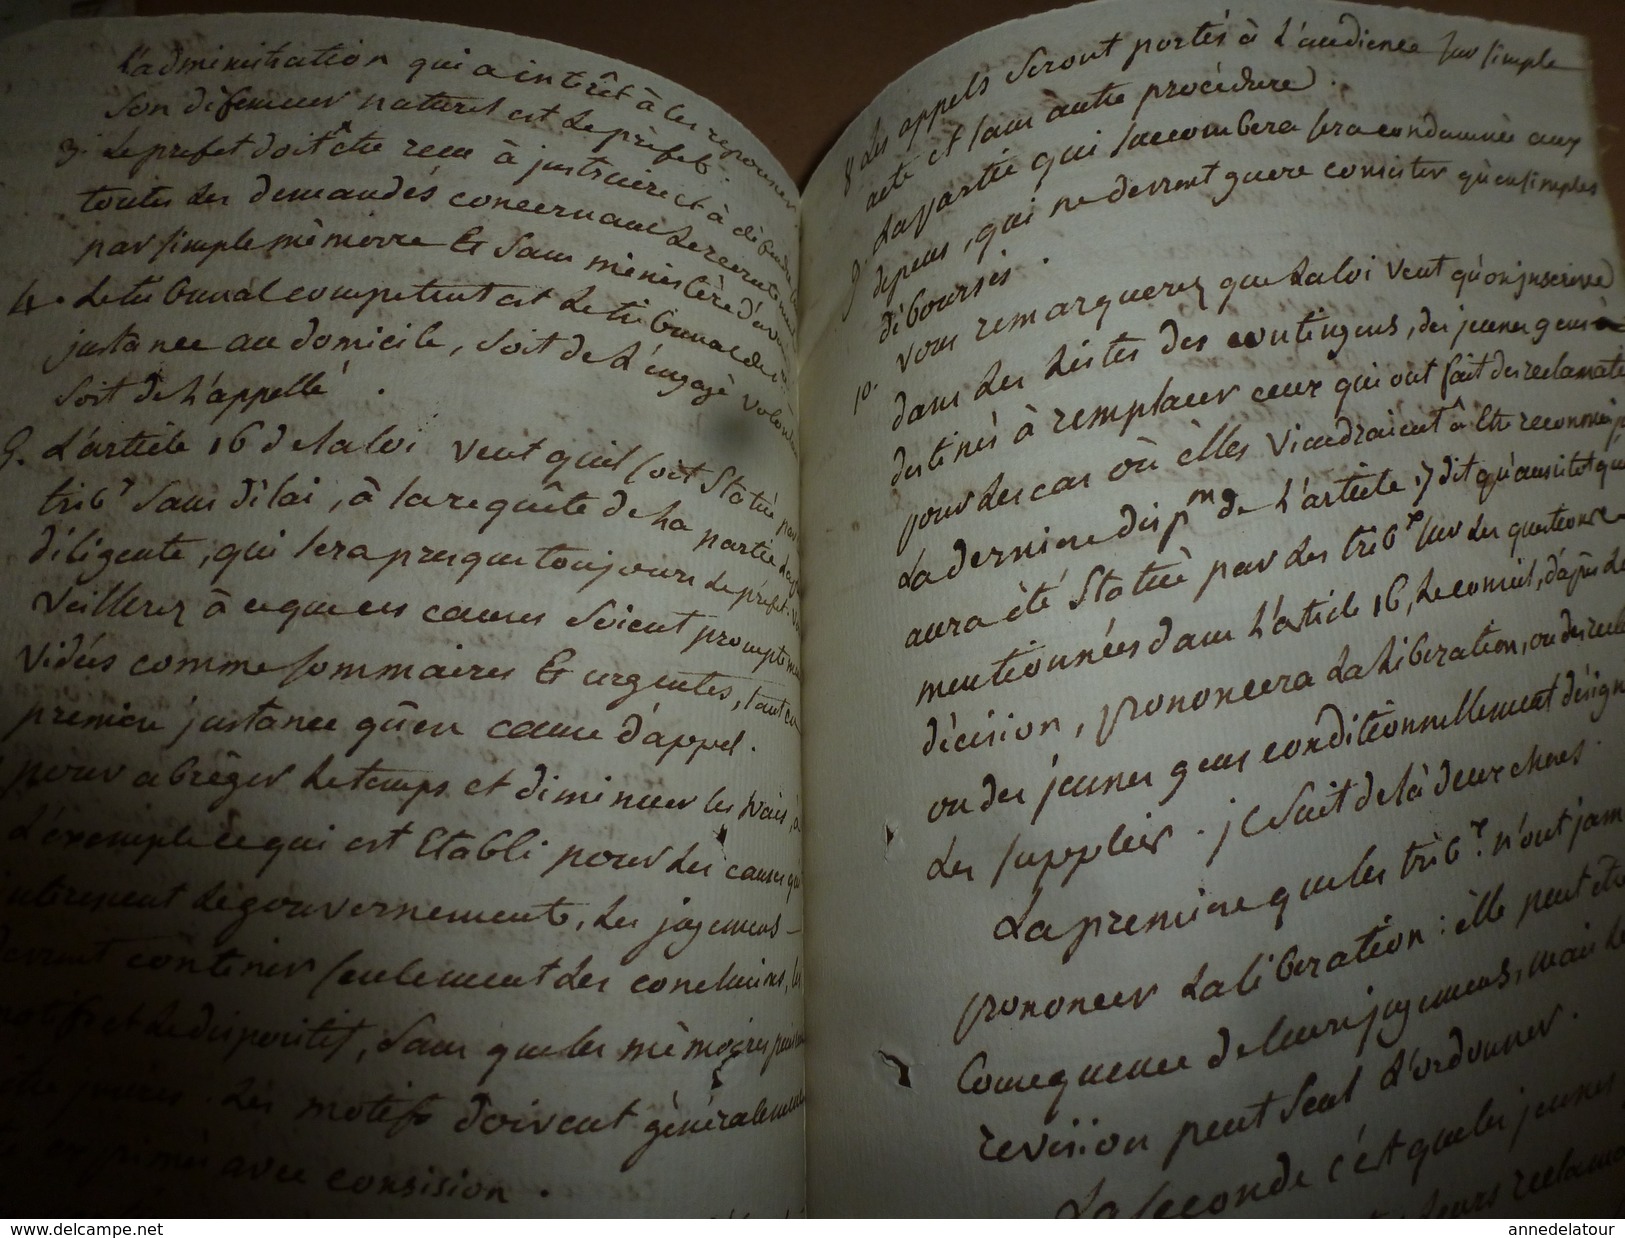 L'administration qui a intérêt à les repousser
Son défenseur naturel est Le préfet.
3. Le prefet doit être recu à justruire et à déffendre
toutes Les demandes concernant Le recrutement
par simple mémoire & Sans ministère d'avoué
4. Le tribunal competent est Le tribunal de 1re
justance au domicile, Soit de L'engagé volontaire
Soit de L'appellé.
5. L'article 16 de la loi veut qu'il soit Statué par
trib.x Sans délai, à la requête de La partie La plus
diligente, qui sera presque toujours Le préfet. Vous
veillerez à ce que ces causes Soient promptement
vidées comme sommaires & urgentes, tant en
premiere justance qu'en cause d'appel.
pour abréger Le temps et diminuer les frais, à
L'exemple ce qui est Etabli pour Les causes qui
interessent Le gouvernement, Les jugemens
devront contenir seulement Les conclusions, les
motifs et Le dispositif, Sans que les mémoires puissent
être Les motifs doivent généralement
exprimés avec consision.
8. Les appels Seront portés à L'audience sur simple
acte et sans autre procédure.
9. La partie qui succombera sera condamnée aux
depens, qui ne devront guere consister qu'en simples
débourcés.
10. vous remarquerez que La loi veut qu'on jnscrive
dans Les Listes des contingens, des jeunes gens
destinés à remplacer ceux qui ont fait des reclamations
pour Les cas où elles viendraient à être reconnues
La derniere disp.on de L'article 17 dit qu'aussitot qu'il
aura été Statué par Les trib.x sur Les questions
mentionnées dans L'article 16, Le conseil, d'après Leur
décision, prononcera La Liberation, ou des
ou des jeunes gens conditionnellement désignés
Les suppléer. jl suit de là deux choses.
La premiere que les trib.x n'ont jamais
prononcer La liberation: elle peut être
consequence de leurs jugemens, mais Le
revision peut Seul L'ordonner.
La seconde c'est que les jeunes
leurs reclamations
https://www.delcampe.net
annedelatour